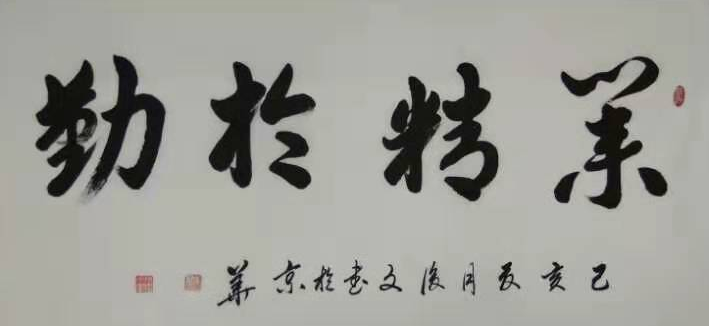 業精於勤
己亥夏月後文书於京華